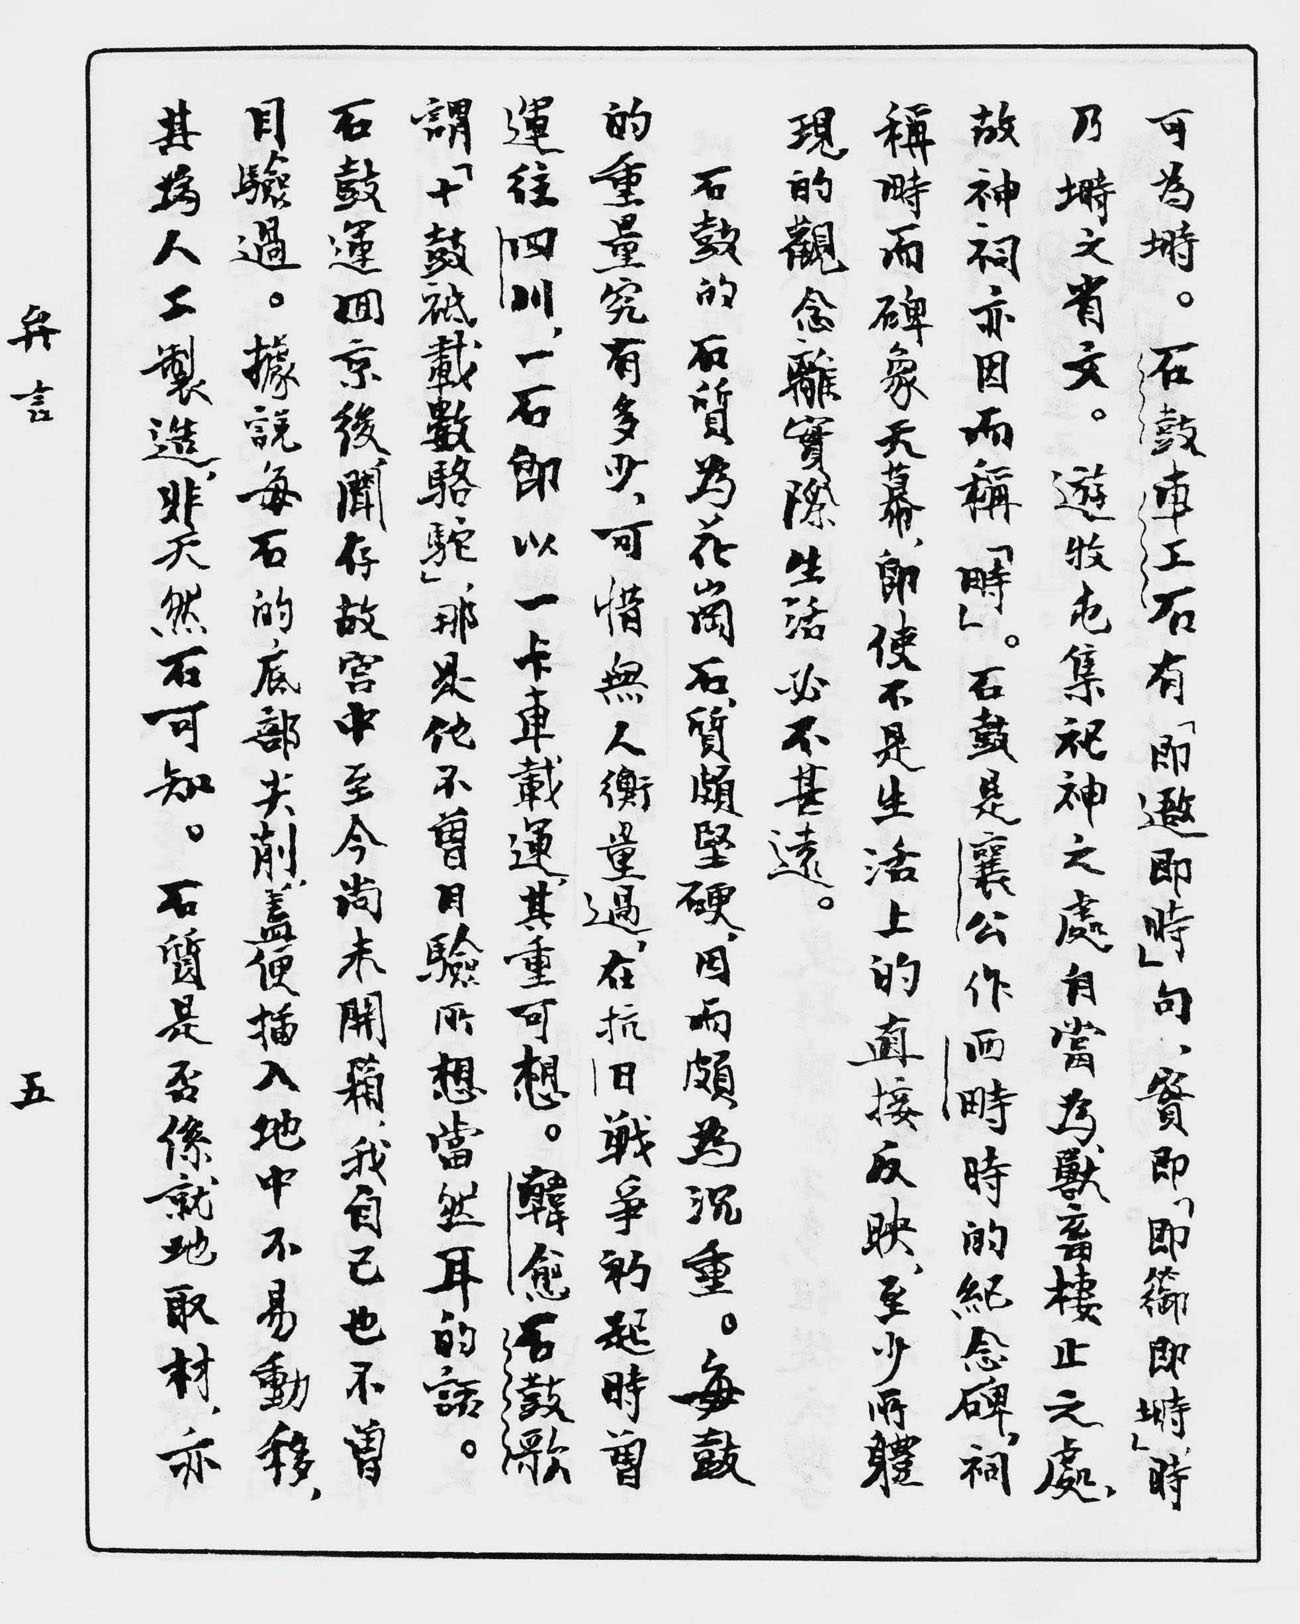 可為塒。石鼓車工石有「即邀即時」句、實即「即禦即塒」、時
乃塒之省文。遊牧屯集祀神之處自當為獸畜棲止之處，
故神祠亦因而稱「畤」。石鼓是襄公作西畤時的紀念碑，祠
稱畤而碑象天幕，即使不是生活上的直接反映，至少所體
現的觀念離實際生活必不甚遠。
石鼓的石質為花崗石，質頗堅硬，因而頗為沉重。每鼓
的重量究有多少，可惜無人衡量過，在抗日戰爭初起時曾
運往四川，一石即以一卡車載運，其重可想。韓愈石鼓歌
謂「十鼓祇載數駱駝」，那是他不曾目驗所想當然耳的話。
石鼓運回京後，聞存故宮中至今尚未開箱，我自己也不曾
目驗過。據說每石的底部尖削，蓋便插入地中不易動移，
其為人工製造，非天然石可知。石質是否係就地取材，亦
弁言
五